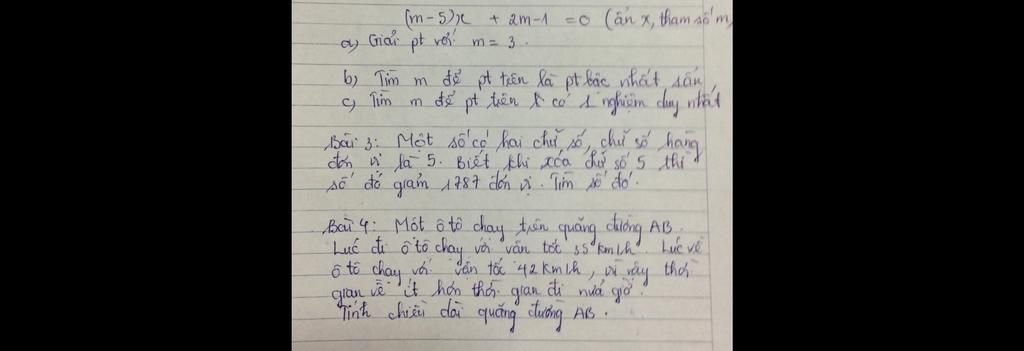 (m-5)x + 2m-1 = 0 (ẩn x, tham số m
a) Giải pt với m = 3.
b) Tìm m để pt trên là pt bậc nhất 1 ẩn
c) Tìm m để pt trên có 1 nghiệm duy nhất
Bài 3: Một số có hai chữ số, chữ số hàng
đơn vị là 5. Biết khi xóa chữ số 5 thì
số đó giảm 1787 đơn vị. Tìm số đó.
Bài 4: Một ô tô chạy trên quãng đường AB.
Lúc đi ô tô chạy với vận tốc 35 km/h. Lúc về
ô tô chạy với vận tốc 42 km/h, vì vậy thời
gian về ít hơn thời gian đi nửa giờ.
Tính chiều dài quãng đường AB.